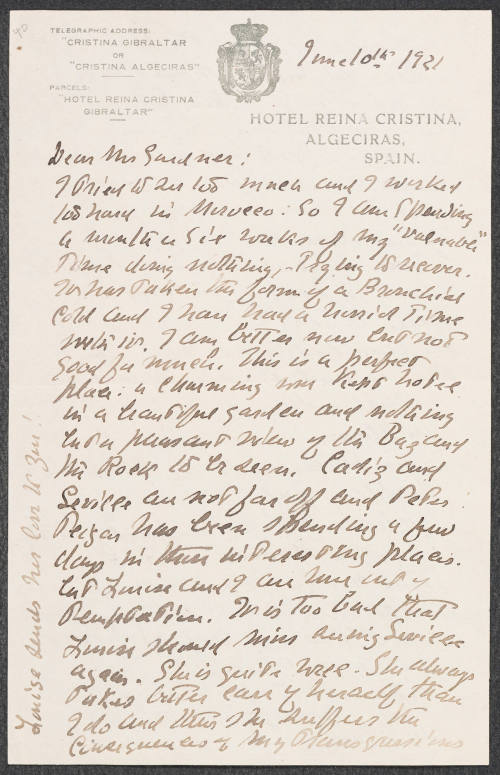 TELEGRAPHIC ADDRESS:
"CRISTINA GIBRALTAR
OR
"CRISTINA ALGECIRAS"
PARCELS:
"HOTEL REINA CRISTINA
GIBRALTAR"
June 10th 1921
HOTEL REINA CRISTINA,
ALGECIRAS,
SPAIN.
Dear Mrs Gardner:
I tried to see too much and I worked
too hard in Morocco: So I am spending
a month or six weeks of my "valuable"
time doing nothing, - trying to recover.
It has taken the form of a Bronchial
cold and I have had a horrid time
with it. I am better now but not
good for much. This is a perfect
place: a charming well kept hotel
in a beautiful garden and nothing
but a pleasant view of the Bay and
the Rock to be seen. Cadiz and
Seville are not far off and
has been spending a few
days in these interesting places.
but Louise and I are
temptation. It is too bad that
Louise should miss seeing Seville
again. She is quite well. She always
takes better care of herself than
I do and thus she suffers the
Consequences of my transgressions
Louise sends her love to you!